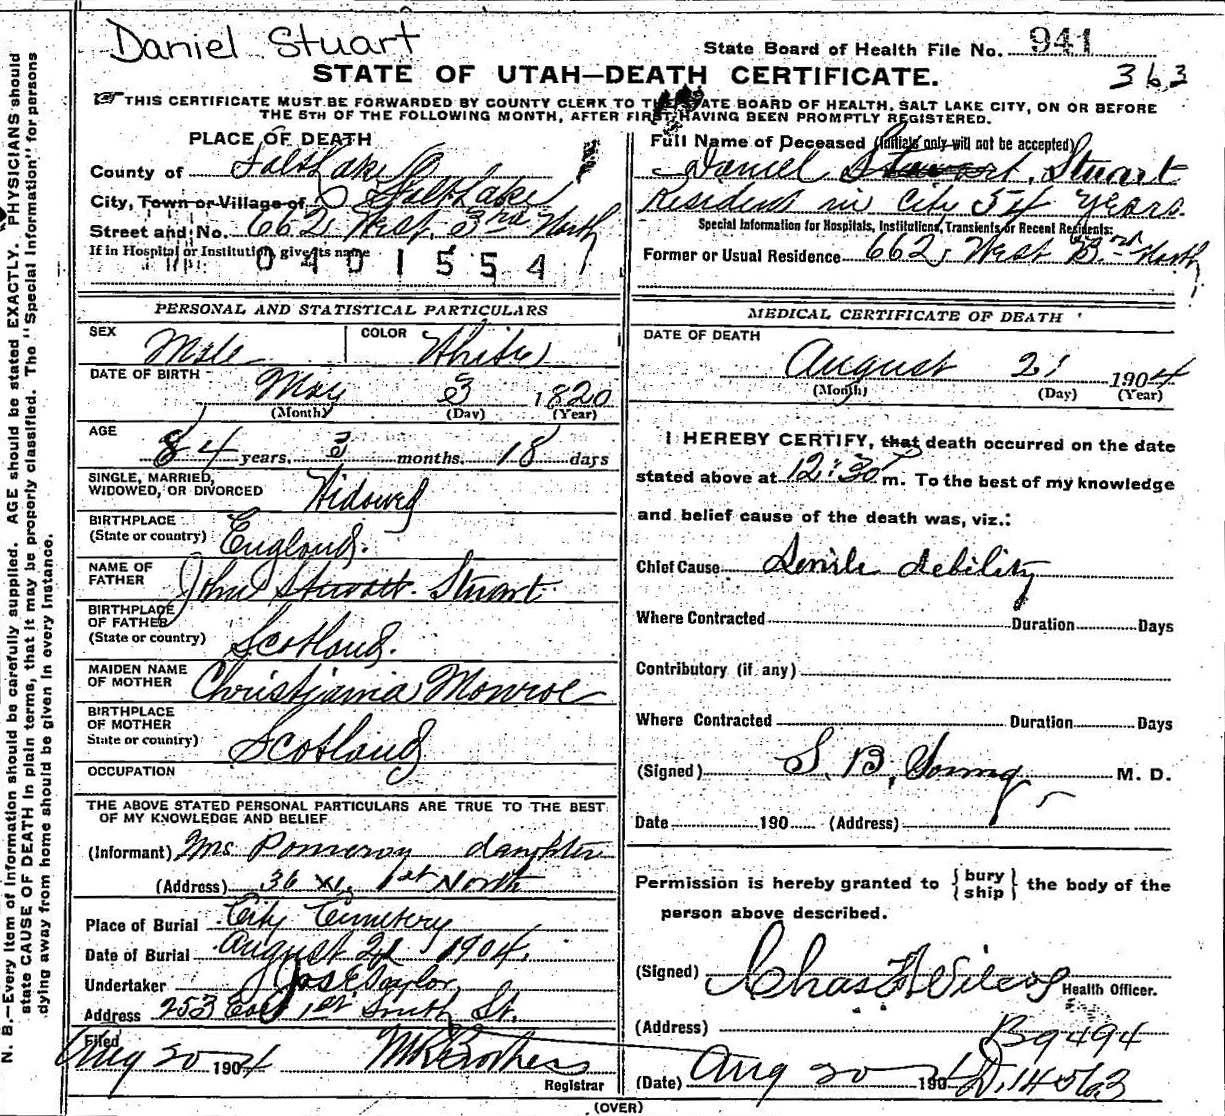 Daniel Stuart
State Board of Health File No. 941
STATE OF UTAH—DEATH CERTIFICATE.
363
☞THIS CERTIFICATE MUST BE FORWARDED BY COUNTY CLERK TO THE STATE BOARD OF HEALTH, SALT LAKE CITY, ON OR BEFORE
THE 5TH OF THE FOLLOWING MONTH, AFTER FIRST HAVING BEEN PROMPTLY REGISTERED.
PLACE OF DEATH
County of Salt Lake
City, Town or Village of Salt Lake
Street and No. 662, West, 3rd North
If in Hospital or Institution, give its name
0401554
Full Name of Deceased (Initials only will not be accepted)
Daniel Stewart, Stuart
Resident in City 54 years.
Special Information for Hospitals, Institutions, Transients or Recent Residents:
Former or Usual Residence 662, West 3rd North
PERSONAL AND STATISTICAL PARTICULARS
SEX Male COLOR White
DATE OF BIRTH
May 3 1820
(Month) (Day) (Year)
AGE
84 years, 3 months, 18 days
SINGLE, MARRIED,
WIDOWED, OR DIVORCED Widowed
BIRTHPLACE
(State or country) England.
NAME OF
FATHER John Stuart
BIRTHPLACE
OF FATHER
(State or country) Scotland.
MAIDEN NAME
OF MOTHER Christiania Monroe
BIRTHPLACE
OF MOTHER
State or country) Scotland
OCCUPATION
THE ABOVE STATED PERSONAL PARTICULARS ARE TRUE TO THE BEST
OF MY KNOWLEDGE AND BELIEF
(Informant) Mrs Pomeroy daughter
(Address) 36 1st North
Place of Burial City Cemetery
Date of Burial August 21 1904.
Undertaker Jos E Taylor
Address 253 East 1st South St.
Filed
Aug 20 1904
Registrar
MEDICAL CERTIFICATE OF DEATH
DATE OF DEATH
August 21 1904
(Month) (Day) (Year)
I HEREBY CERTIFY, that death occurred on the date
stated above at 12:30 m. To the best of my knowledge
and belief cause of the death was, viz.:
Chief Cause Senile debility
Where Contracted Duration Days
Contributory (if any)
Where Contracted Duration Days
(Signed) S. B. Young M. D.
Date 190 (Address)
Permission is hereby granted to {bury
ship} the body of the
person above described.
(Signed) Chas F Wilcox Health Officer.
(Address) B9494
(Date) Aug 20 1904 D.14563
(OVER)
N. B.—Every item of information should be carefully supplied. AGE should be stated EXACTLY. PHYSICIANS should
state CAUSE OF DEATH in plain terms, that it may be properly classified. The "Special Information" for persons
dying away from home should be given in every instance.